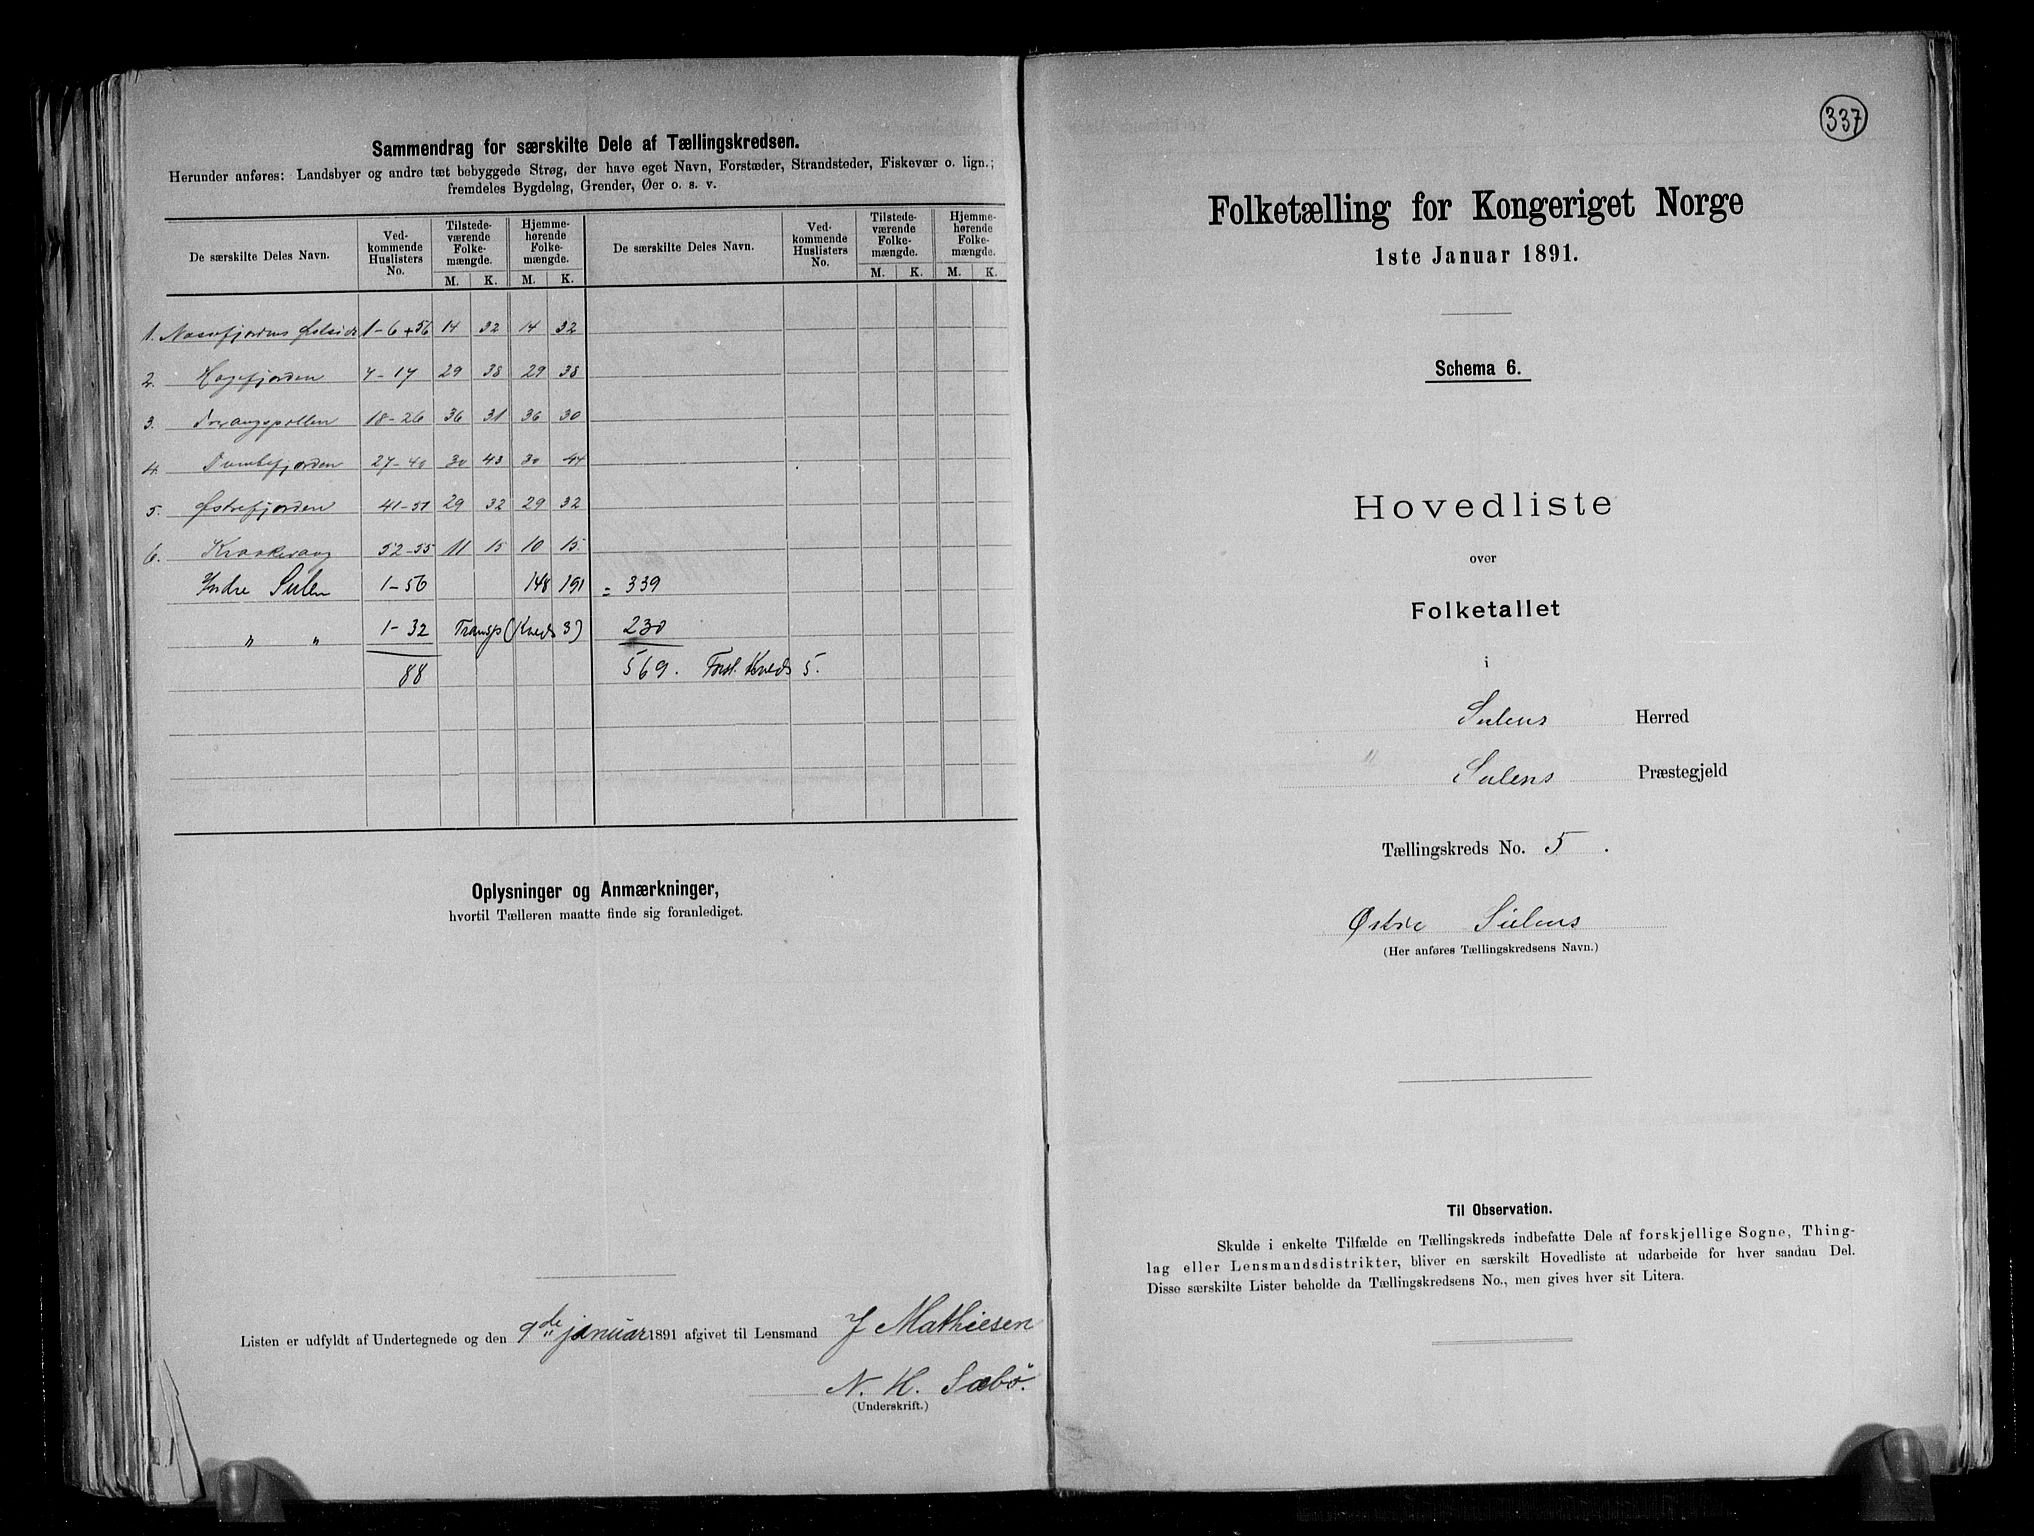 Sammendrag for særskilte Dele af Tællingskredsen.
Herunder anføres: Landsbyer og andre tæt bebyggede Strøg, der have eget Navn, Forstæder, Strandsteder, Fiskevær o. lign.;
fremdeles Bygdelag, Grender, Øer o. s. v.
De særskilte Deles Navn. Ved- kommende Huslisters No. Tilstede- værende Folke- mængde. Hjemme- hørende Folke- mængde. De særskilte Deles Navn. Ved- kommende Huslisters No. Tilstede- værende Folke- mængde. Hjemme- hørende Folke- mængde.
M. K. M. K. M. K. M. K.
1. 1-6+56 14 32 14 32
2. Hagefjorden 7-17 29 38 29 38
3. 18-26 36 31 36 30
4. Dumbefjorden 27-40 30 43 30 44
5. Østrefjorden 41-51 29 32 29 32
6. Kraakevaag 52-55 11 15 10 15
Indre Sulen 1-56 148 191 = 339
" " 1-32 Transp (Kreds 3) 230
88 569. Forst. Kreds 5.
Oplysninger og Anmærkninger,
hvortil Tælleren maatte finde sig foranlediget.
Listen er udfyldt af Undertegnede og den 9de januar 1891 afgivet til Lensmand J Mathiesen
N. H. Sæbö.
(Underskrift.)
337
Folketælling for Kongeriget Norge
1ste Januar 1891.
Schema 6.
Hovedliste
over
Folketallet
i
Sulens Herred
Sulens Præstegjeld
Tællingskreds No. 5.
Østre Sulens
(Her anføres Tællingskredsens Navn.)
Til Observation.
Skulde i enkelte Tilfælde en Tællingskreds indbefatte Dele af forskjellige Sogne, Thing-
lag eller Lensmandsdistrikter, bliver en særskilt Hovedliste at udarbeide for hver saadan Del.
Disse særskilte Lister beholde da Tællingskredsens No., men gives hver sit Litera.